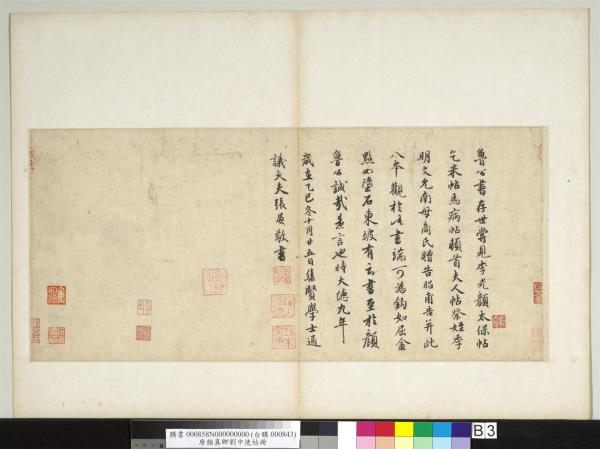 魯公書存世嘗見李光顏太保帖
乞米帖馬病帖頓首夫人帖祭姪季
明文允南母商氏贈告昭甫告并此
八本觀於此書端可為鉤如屈金
點如墜石東坡有云書至於顏
魯公誠哉是言也時大德九年
歲在乙巳冬十月廿五日集賢學士通
議大夫張晏敬書
購書 000858N000000000 (台購 000843)
唐顏真卿劉中使帖冊
B 3